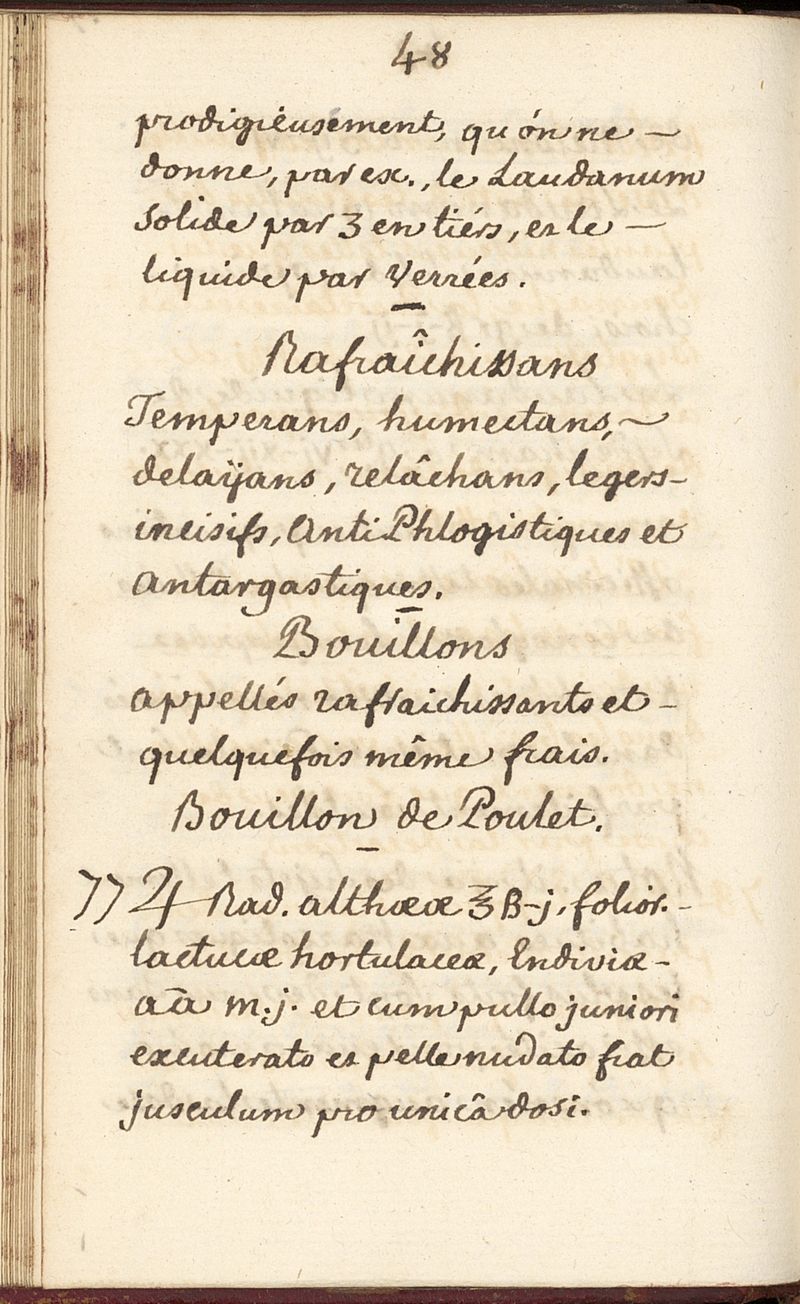 48
prodigiéusement, qu'ón ne —
donne, par ex., le Laudanum
solide par ʒ entiérs, et le —
liquide par Verrées.
Rafraîchissans
Temperans, humectans, ~
delaÿans, relâchans, legers-
incisifs, AntiPhlogistiques et
antargastiques.
Bouillons
appellés rafraichissants et -
quelquefois même frais.
Bouillon de Poulet.
77 ♃ Rad. althææ ℥ß-j. folior. -
lactucæ hortulaceæ, Endiviæ -
aā m.j. et cum pullo juniori
exenterato et pelle nudato fiat
jusculum pro unicâ dosi.